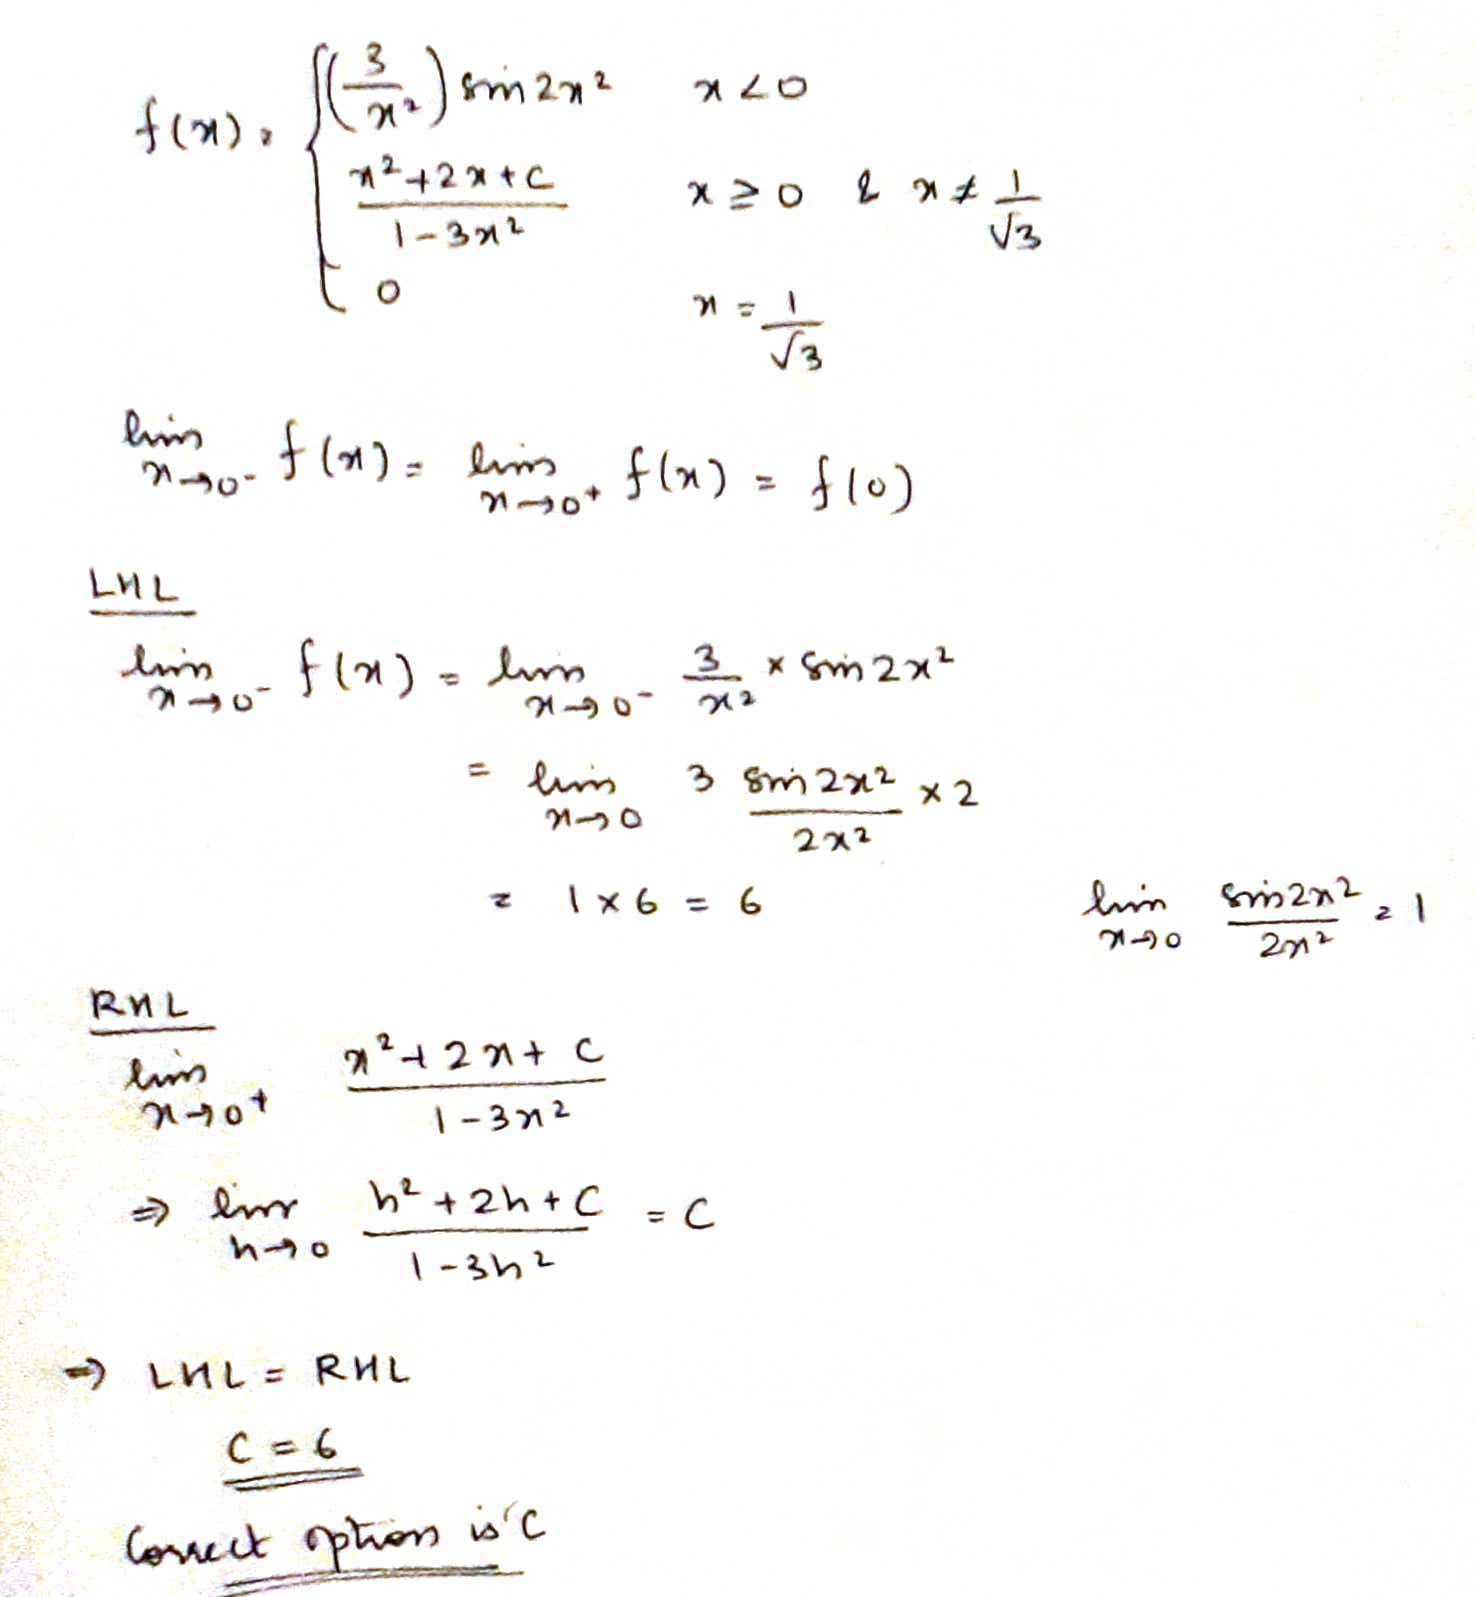 f(x) = { (3/x²) sin 2x² x < 0
(x²+2x+c)/(1-3x²) x ≥ 0 & x ≠ 1/√3
0 x = 1/√3
lim x→0⁻ f(x) = lim x→0⁺ f(x) = f(0)
LHL
lim x→0⁻ f(x) = lim x→0⁻ 3/x² × sin 2x²
= lim x→0 3 (sin 2x²)/(2x²) × 2
= 1 × 6 = 6 lim x→0 (sin 2x²)/(2x²) = 1
RHL
lim x→0⁺ (x²+2x+c)/(1-3x²)
⇒ lim h→0 (h²+2h+c)/(1-3h²) = c
⇒ LHL = RHL
C = 6
Correct option is 'C